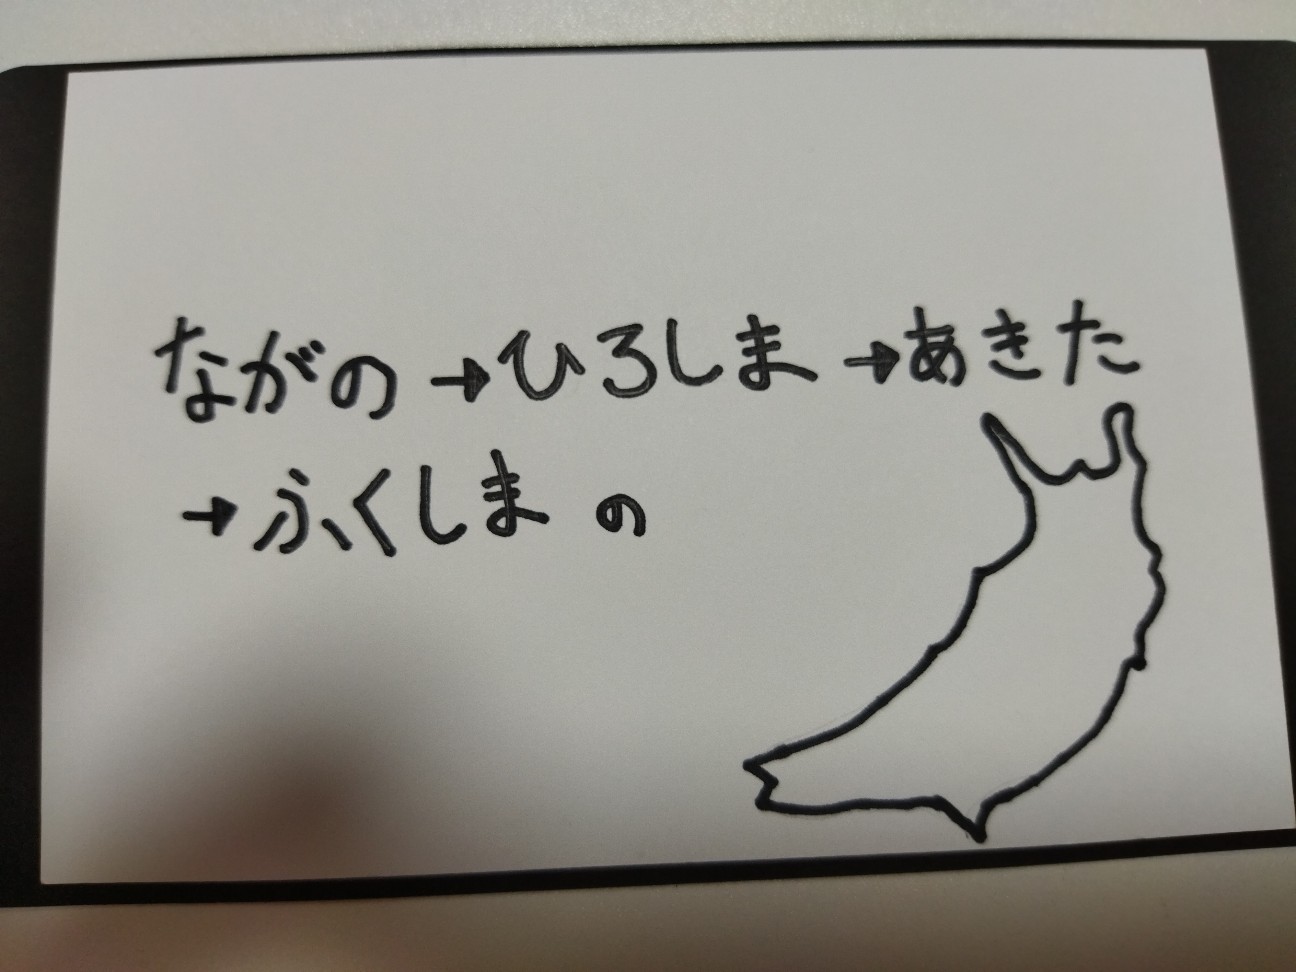 ながの→ひろしま→あきた
→ふくしまの